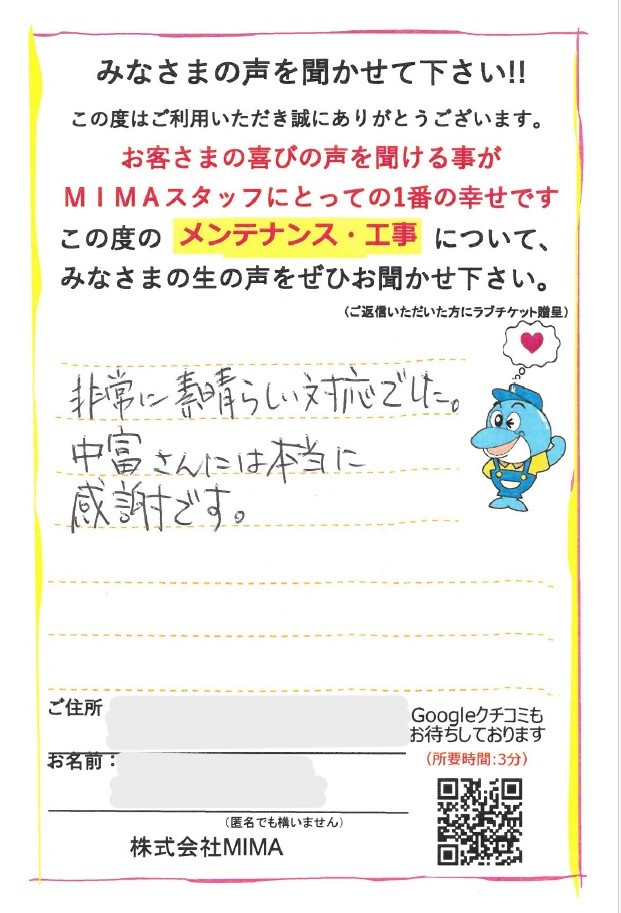 みなさまの声を聞かせて下さい!!
この度はご利用いただき誠にありがとうございます。
お客さまの喜びの声を聞ける事が
MIMAスタッフにとっての1番の幸せです
この度の メンテナンス・工事 について、
みなさまの生の声をぜひお聞かせ下さい。
(ご返信いただいた方にラブチケット贈呈)
非常に素晴らしい対応でした。
中富さんには本当に
感謝です。
ご住所
Googleクチコミも
お待ちしております
(所要時間:3分)
お名前:
(匿名でも構いません)
株式会社MIMA